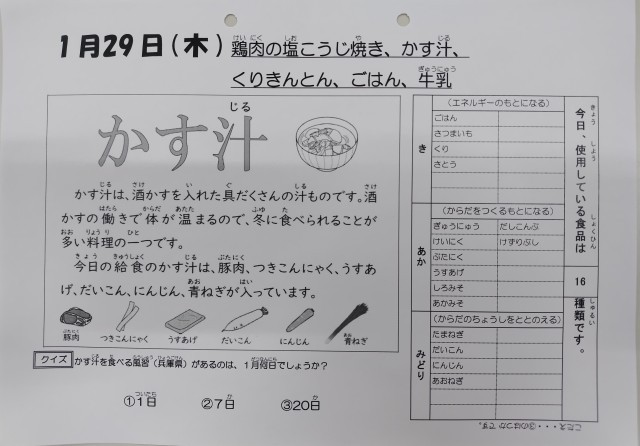 1月29日(木) 鶏肉の塩こうじ焼き、かす汁、
くりきんとん、ごはん、牛乳
かす汁
かす汁は、酒かすを入れた具だくさんの汁ものです。酒
かすの働きで体が温まるので、冬に食べられることが
多い料理の一つです。
今日の給食のかす汁は、豚肉、つきこんにゃく、うすあ
げ、だいこん、にんじん、青ねぎが入っています。
豚肉 つきこんにゃく うすあげ だいこん にんじん 青ねぎ
クイズ かす汁を食べる風習(兵庫県)があるのは、1月何日でしょうか?
①1日 ②7日 ③20日
今日、使用している食品は
16
種類です。
き
(エネルギーのもとになる)
ごはん
さつまいも
くり
さとう
あか
(からだをつくるもとになる)
ぎゅうにゅう だしこんぶ
けいにく けずりぶし
ぶたにく
うすあげ
しろみそ
あかみそ
みどり
(からだのちょうしをととのえる)
たまねぎ
だいこん
にんじん
あおねぎ
こたえ・・・③のはつかです。